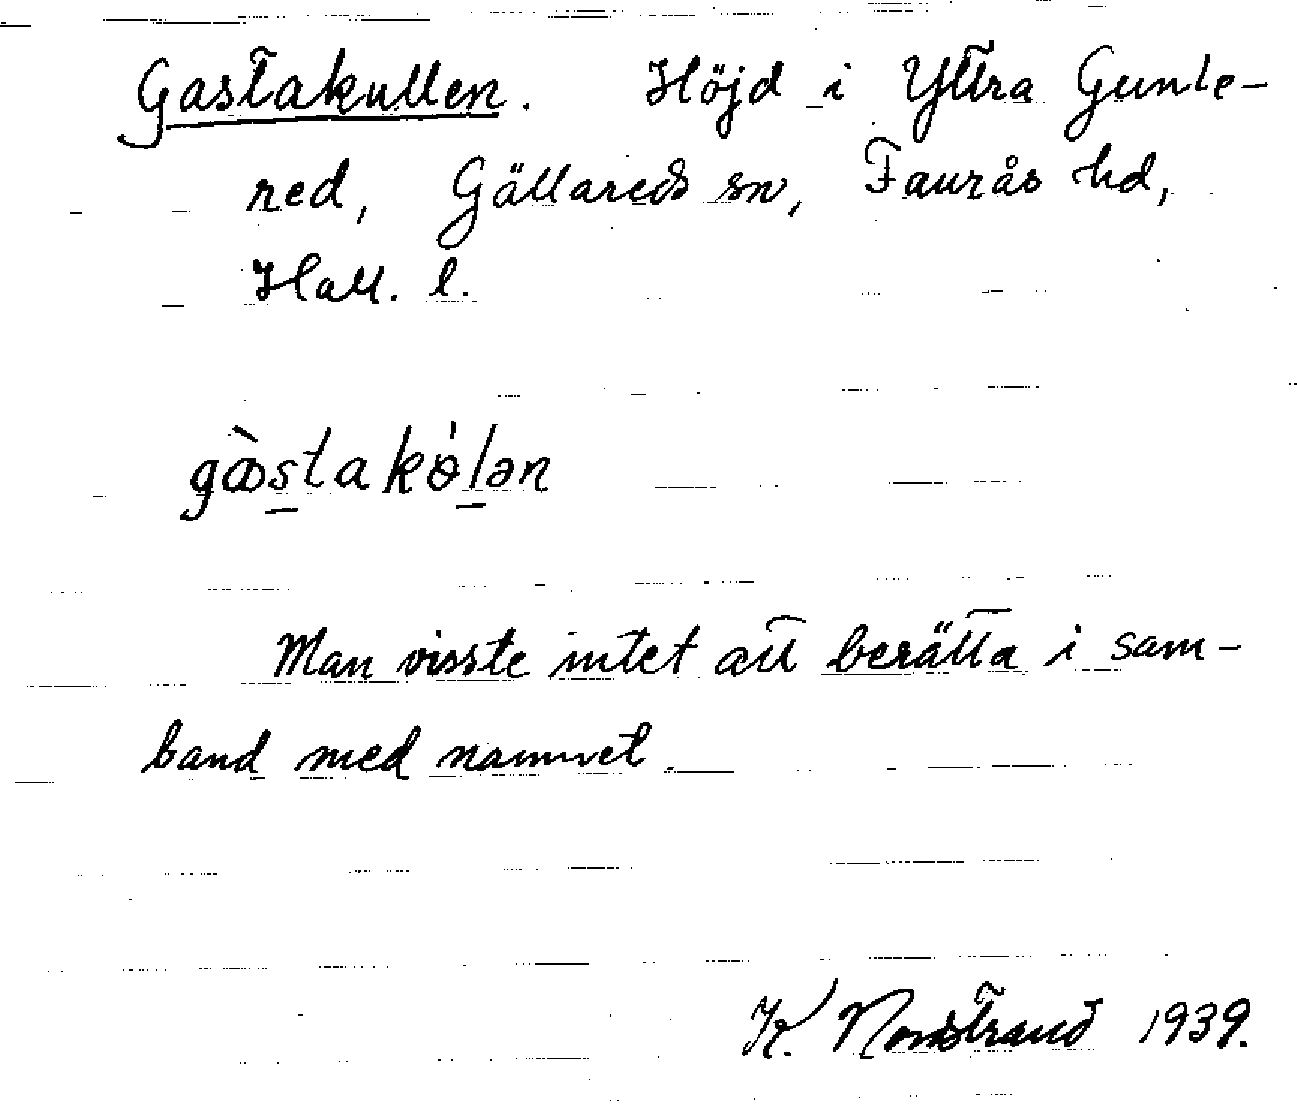 Gastakullen. Höjd i Yttra Gunle-
red, Gällareds sn, Faurås hd,
Hall. l.
gàstakɵ́lən
Man visste intet att berätta i sam-
band med namnet.
K. Nordstrand 1939.